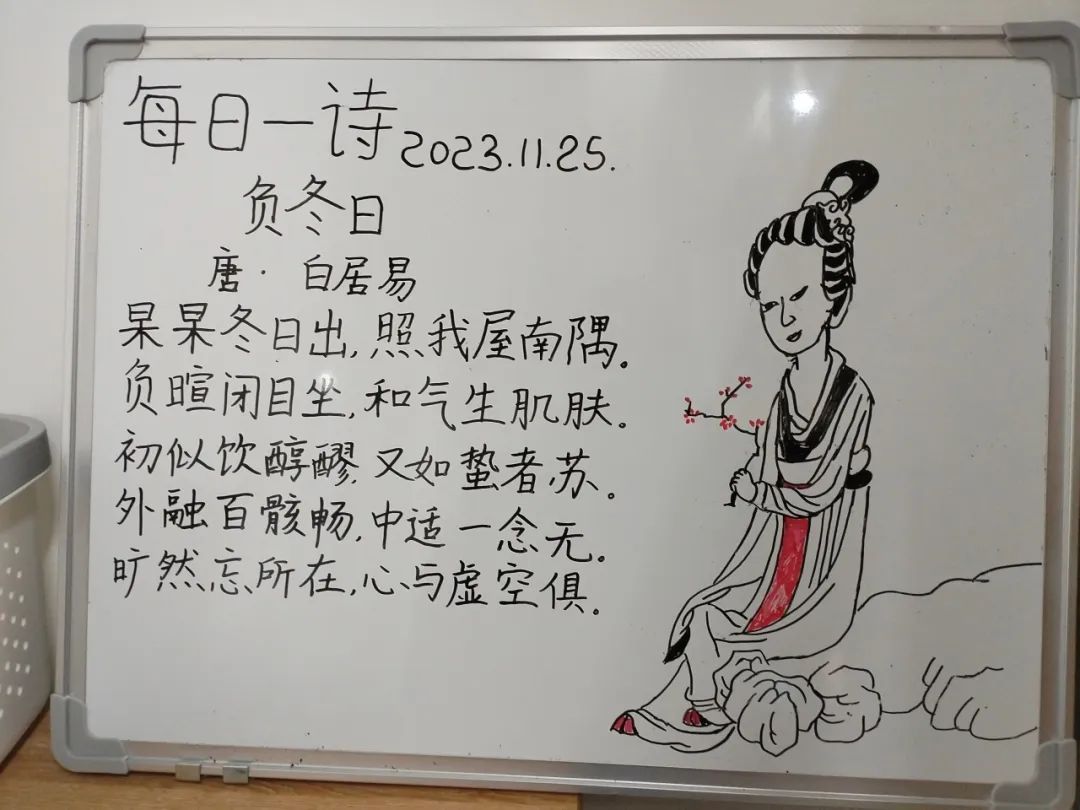 每日一诗 2023.11.25.
负冬日
唐· 白居易
杲杲冬日出,照我屋南隅。
负暄闭目坐,和气生肌肤。
初似饮醇醪,又如蛰者苏。
外融百骸畅,中适一念无。
旷然忘所在,心与虚空俱。